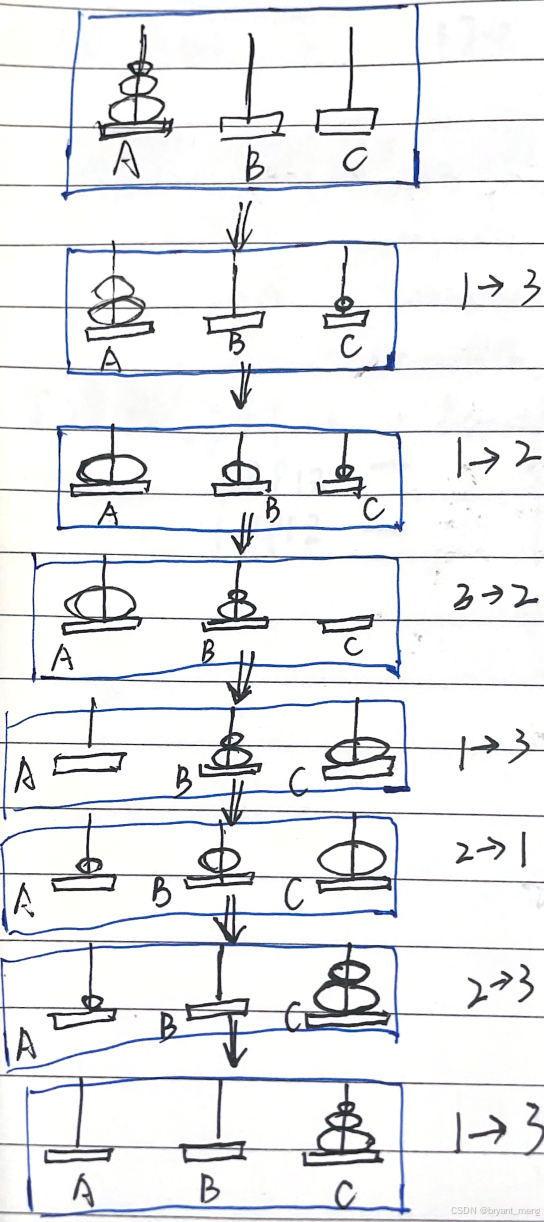 A B C
1 → 3
A B C
1 → 2
A B C
3 → 2
A B C
1 → 3
A B C
2 → 1
A B C
2 → 3
A B C
1 → 3
A B C
CSDN @bryant_meng